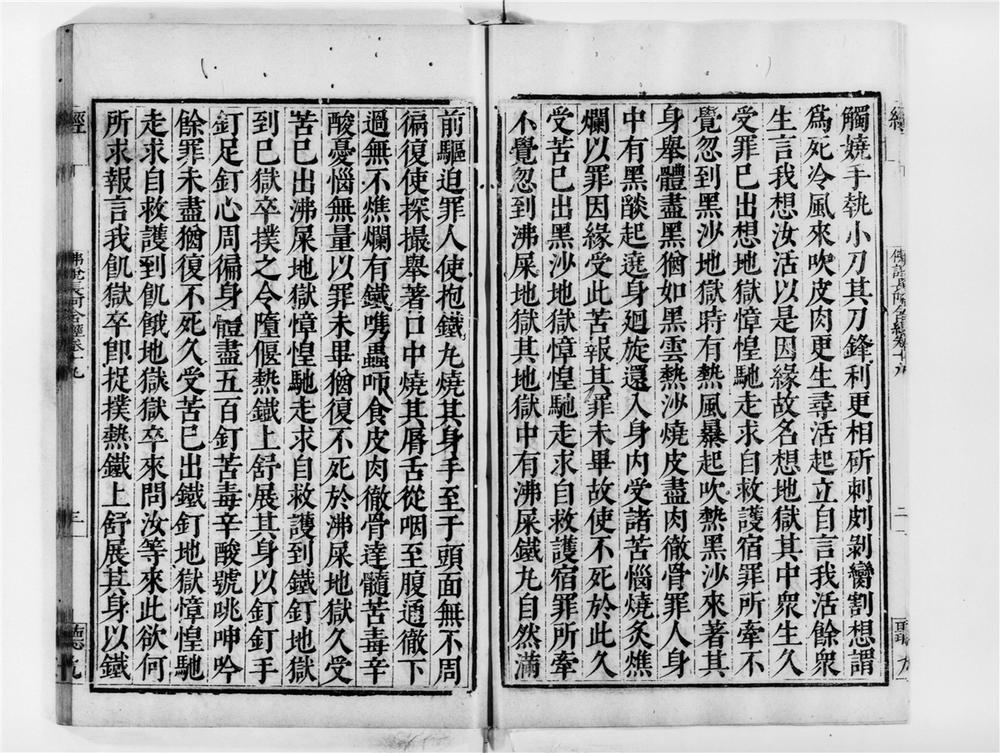 觸嬈手執小刀其刀鋒利更相斫刺剫剝臠割想謂
爲死冷風來吹皮肉更生尋活起立自言我活餘衆
生言我想汝活以是因緣故名想地獄其中衆生久
受罪已出想地獄慞惶馳走求自救護宿罪所牽不
覺忽到黑沙地獄時有熱風暴起吹熱黑沙來著其
身舉體盡黑猶如黑雲熱沙燒皮盡肉徹骨罪人身
中有黑燄起遶身廻旋還入身內受諸苦惱燒炙燋
爛以罪因緣受此苦報其罪未畢故使不死於此久
受苦已出黑沙地獄慞惶馳走求自救護宿罪所牽
不覺忽到沸屎地獄其地獄中有沸屎鐵丸自然滿
前驅迫罪人使抱鐵丸燒其身手至于頭面無不周
徧復使探撮舉著口中燒其脣舌從咽至腹通徹下
過無不燋爛有鐵嘴蟲唼食皮肉徹骨達髓苦毒辛
酸憂惱無量以罪未畢猶復不死於沸屎地獄久受
苦已出沸屎地獄慞惶馳走求自救護到鐵釘地獄
到已獄卒撲之令墮偃熱鐵上舒展其身以釘釘手
釘足釘心周徧身體盡五百釘苦毒辛酸號咷呻吟
餘罪未盡猶復不死久受苦已出鐵釘地獄慞惶馳
走求自救護到飢餓地獄獄卒來問汝等來此欲何
所求報言我飢獄卒卽捉撲熱鐵上舒展其身以鐵
經
佛說長阿含經卷十九
二
經
佛說長阿含經卷十九
三